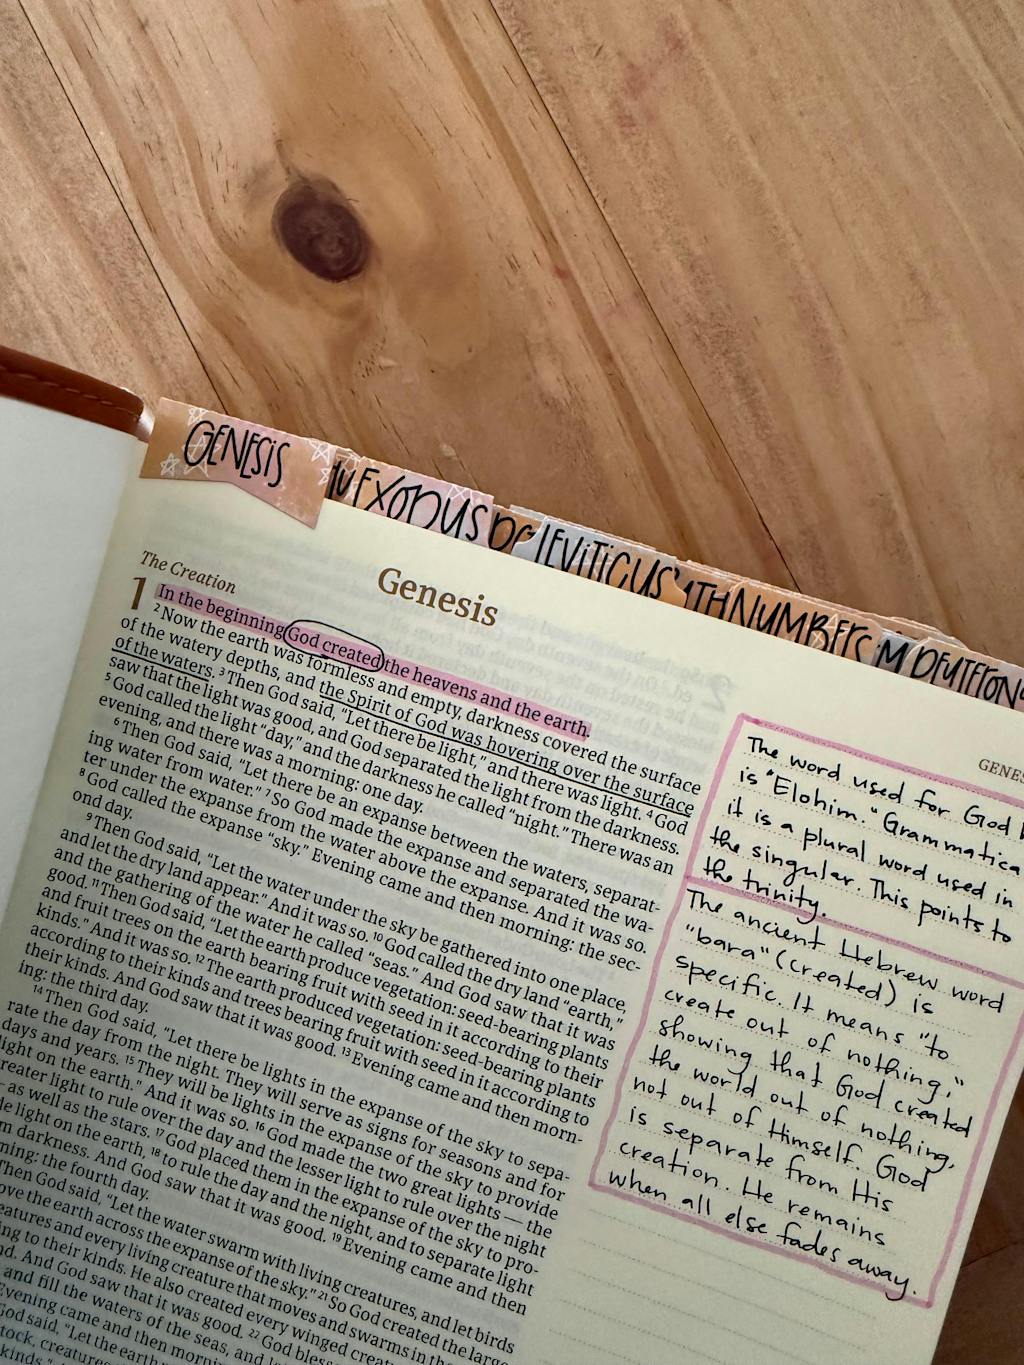 GENESIS
EXODUS
LEVITICUS
NUMBERS
The Creation
Genesis
GENES
1 In the beginning God created the heavens and the earth.
2 Now the earth was formless and empty, darkness covered the surface
of the watery depths, and the Spirit of God was hovering over the surface
of the waters. 3 Then God said, “Let there be light,” and there was light. 4 God
saw that the light was good, and God separated the light from the darkness.
5 God called the light “day,” and the darkness he called “night.” There was an
evening, and there was a morning: one day.
6 Then God said, “Let there be an expanse between the waters, separat-
ing water from water.” 7 So God made the expanse and separated the wa-
ter under the expanse from the water above the expanse. And it was so.
8 God called the expanse “sky.” Evening came and then morning: the sec-
ond day.
9 Then God said, “Let the water under the sky be gathered into one place,
and let the dry land appear.” And it was so. 10 God called the dry land “earth,”
and the gathering of the water he called “seas.” And God saw that it was
good. 11 Then God said, “Let the earth produce vegetation: seed-bearing plants
and fruit trees on the earth bearing fruit with seed in it according to their
kinds.” And it was so. 12 The earth produced vegetation: seed-bearing plants
according to their kinds and trees bearing fruit with seed in it according to
their kinds. And God saw that it was good. 13 Evening came and then morn-
ing: the third day.
14 Then God said, “Let there be lights in the expanse of the sky to sepa-
rate the day from the night. They will serve as signs for seasons and for
days and years. 15 They will be lights in the expanse of the sky to provide
light on the earth.” And it was so. 16 God made the two great lights — the
reater light to rule over the day and the lesser light to rule over the night
— as well as the stars. 17 God placed them in the expanse of the sky to pro-
de light on the earth, 18 to rule the day and the night, and to separate light
m darkness. And God saw that it was good. 19 Evening came and then
ning: the fourth day.
Then God said, “Let the water swarm with living creatures, and let birds
ove the earth across the expanse of the sky.” 21 So God created the large
eatures and every living creature that moves and swarms in the
ng to their kinds. He also created every winged creat
d. And God saw that it was good. 22 God bless
and fill the waters of the seas, and le
Evening came and then morni
God said, “Let the earth
tock, creatures
kinds.”
The word used for God
is “Elohim.” Grammatica
it is a plural word used in
the singular. This points to
the trinity.
The ancient Hebrew word
“bara” (created) is
specific. It means “to
create out of nothing,”
showing that God created
the world out of nothing,
not out of Himself. God
is separate from His
creation. He remains
when all else fades away.